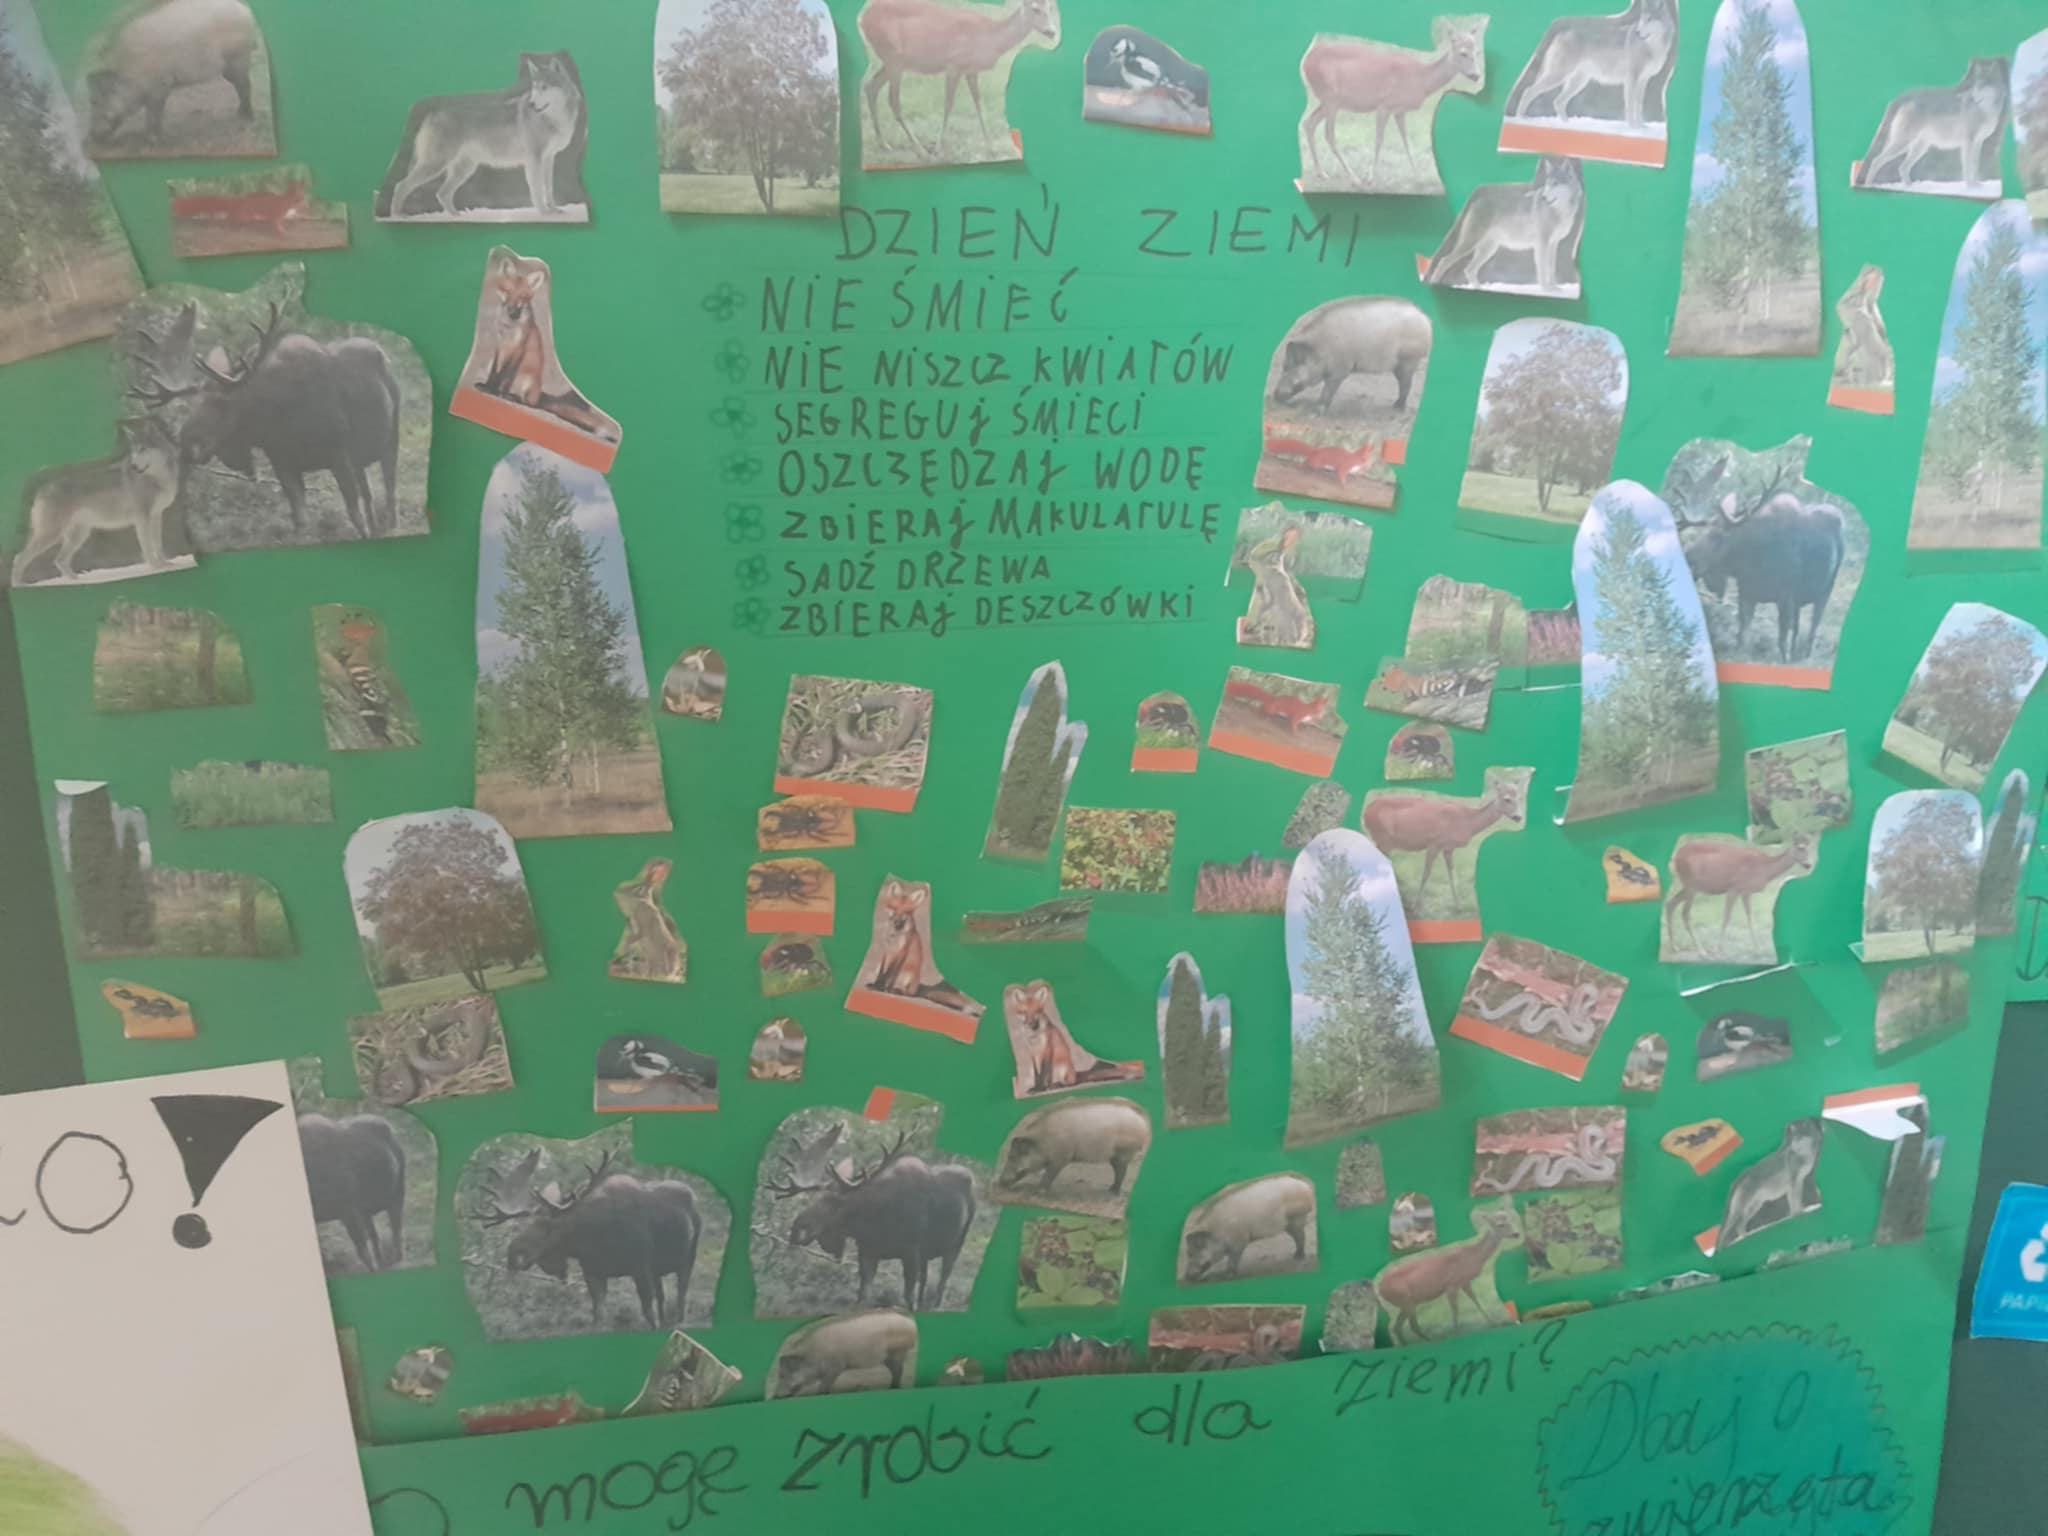 DZIEŃ ZIEMI
NIE ŚMIEĆ
NIE NISZCZ KWIATÓW
SEGREGUJ ŚMIECI
OSZCZĘDZAJ WODĘ
ZBIERAJ MAKULATULĘ
SADŹ DRZEWA
ZBIERAJ DESZCZÓWKI
mogę zrobić dla ziemi?
Dbaj o
zwierzęta